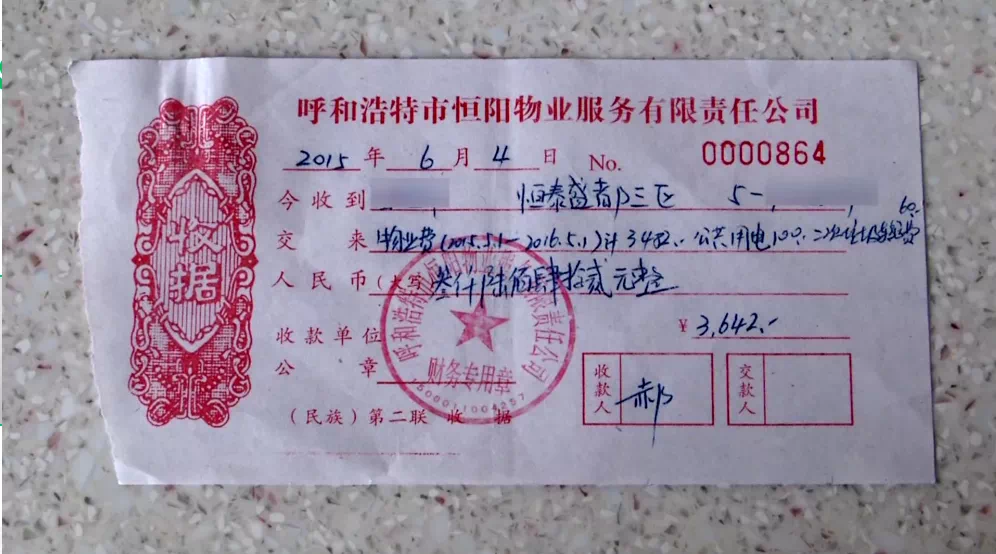 呼和浩特市恒阳物业服务有限责任公司
2015年6月4日 No. 0000864
今收到 恒泰盛都B三区 5-
交来 物业费(2015.5.1-2016.5.1)计3482.- 公共用电100. 二次 经费 60.
人民币(大写)叁仟陆佰肆拾贰元整
收据
收款单位 ¥ 3,642.-
公章
收款人 郝
交款人
(民族)第二联 收据
财务专用章